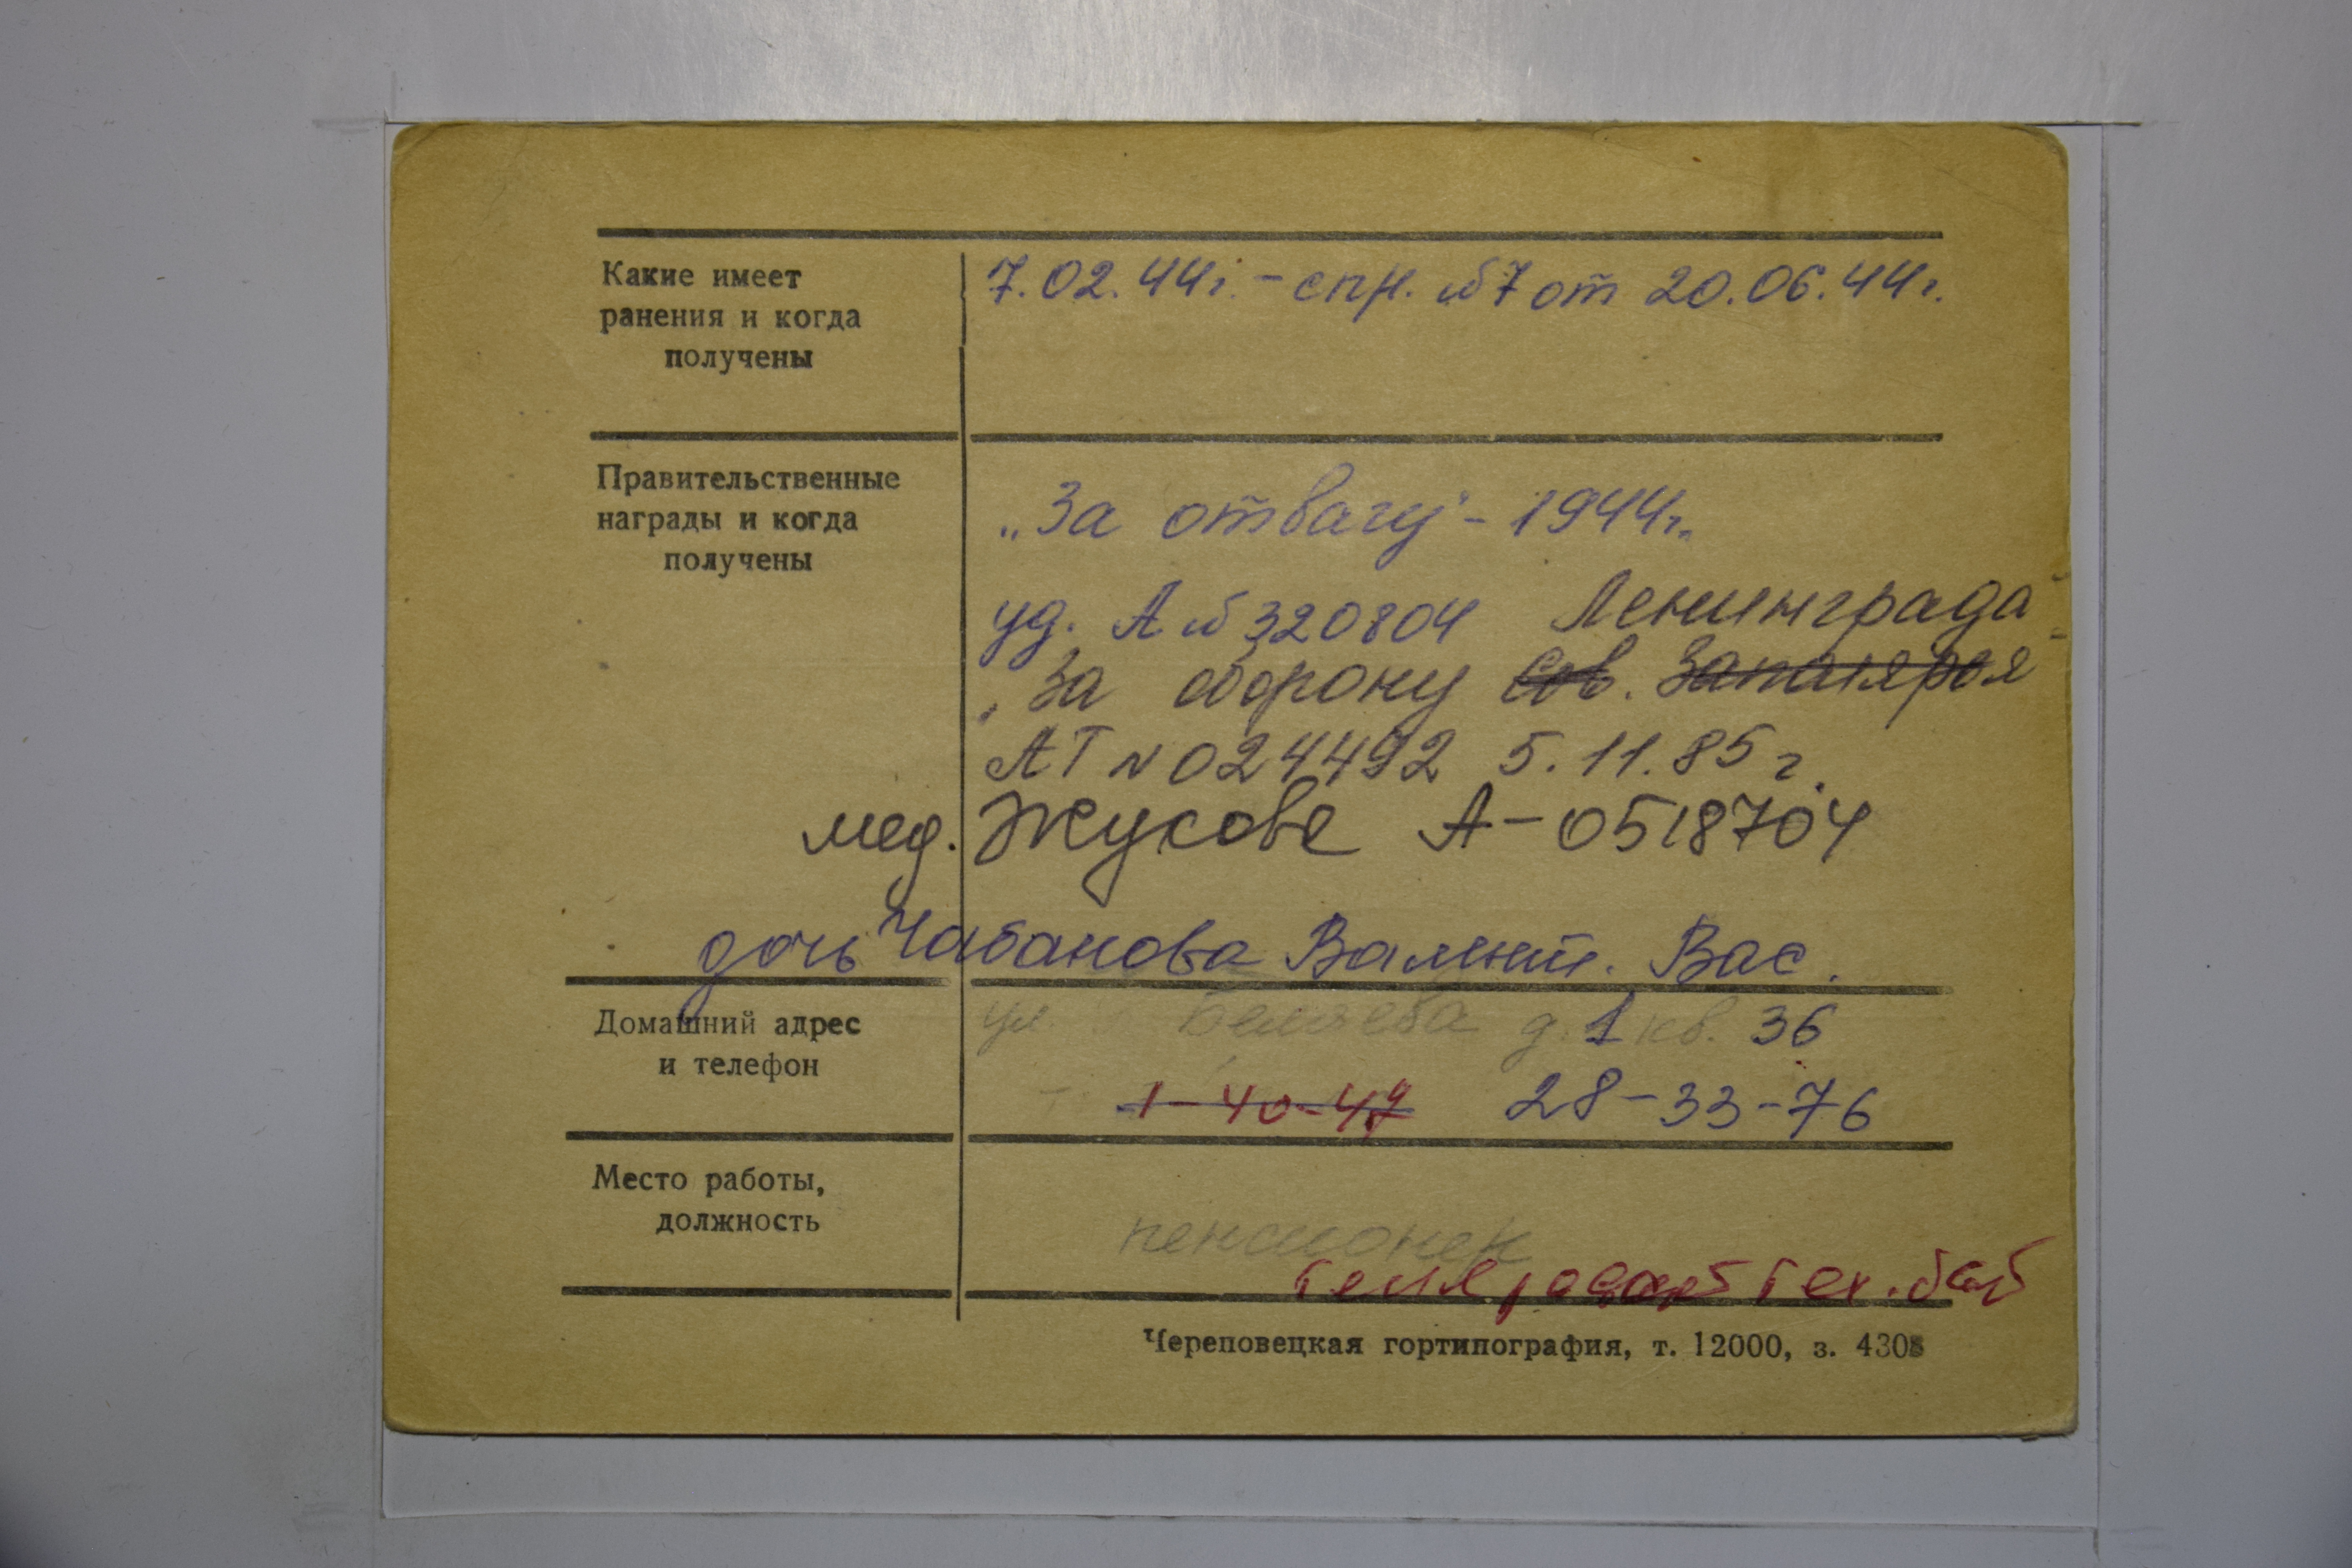 Какие имеет
ранения и когда
получены
7.02.44г. – спр. №7 от 20.06.44г.
Правительственные
награды и когда
получены
„За отвагу" – 1944г.
уд. А №320804 Ленинграда"
„За оборону Сов. Заполярья
АТ №024492 5.11.85г.
мед. Жукова А-0518704
дочь Чабанова Валент. Вас.
Домашний адрес
и телефон
ул Беляева д. 1 кв. 36
1-40-47 28-33-76
Место работы,
должность
пенсионер
тех.
Череповецкая гортипография, т. 12000, з. 4308